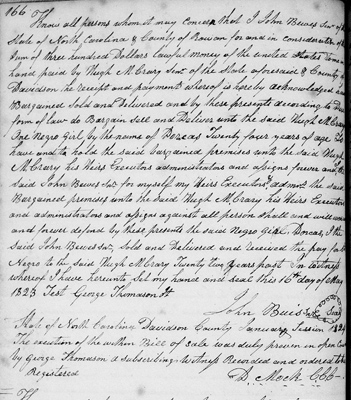 166
Know all persons whom it may Concern that I John Buis Snr of the
State of North Carolina & County of Rowan for and in consideration of
Sum of three hundred Dollars lawful money of the united States to me in
hand paid by Hugh McCrary Snr of the State aforesaid & County of
Davidson the receipt and payment whereof is hereby acknowledged have
Bargained Sold and Delivered and by these present according to Due
form of law do Bargain Sell and Deliver unto the Said Hugh McCrary
One Negro Girl by the name of Twenty four years of age To
have and to hold the said bargained premises unto the Said Hugh
McCrary his Heirs Executors administrators and assigns forever and the
Said John Buis Snr for myself my Heirs Executors admrs the said
Bargained premises unto the Said Hugh McCrary his Heirs Executors
and administrators and assigns against all person shall and will warrant
and forever defend by these presents the said Negro Girl I the
Said John Buis Snr Sold and Delivered and received the pay for
Negro to the Said Hugh McCrary Twenty two Years past In witness
whereof I have hereunto Set my hand and seal this 16th day of May
1823 Test George Thomason Jr
John Buis Snr Seal
State of North Carolina Davidson County January Session 1824
The execution of the within Bill of Sale was duly proven in open Court
by George Thomason a subscribing witness Recorded and ordered to be
Registered
D. Mock CCC